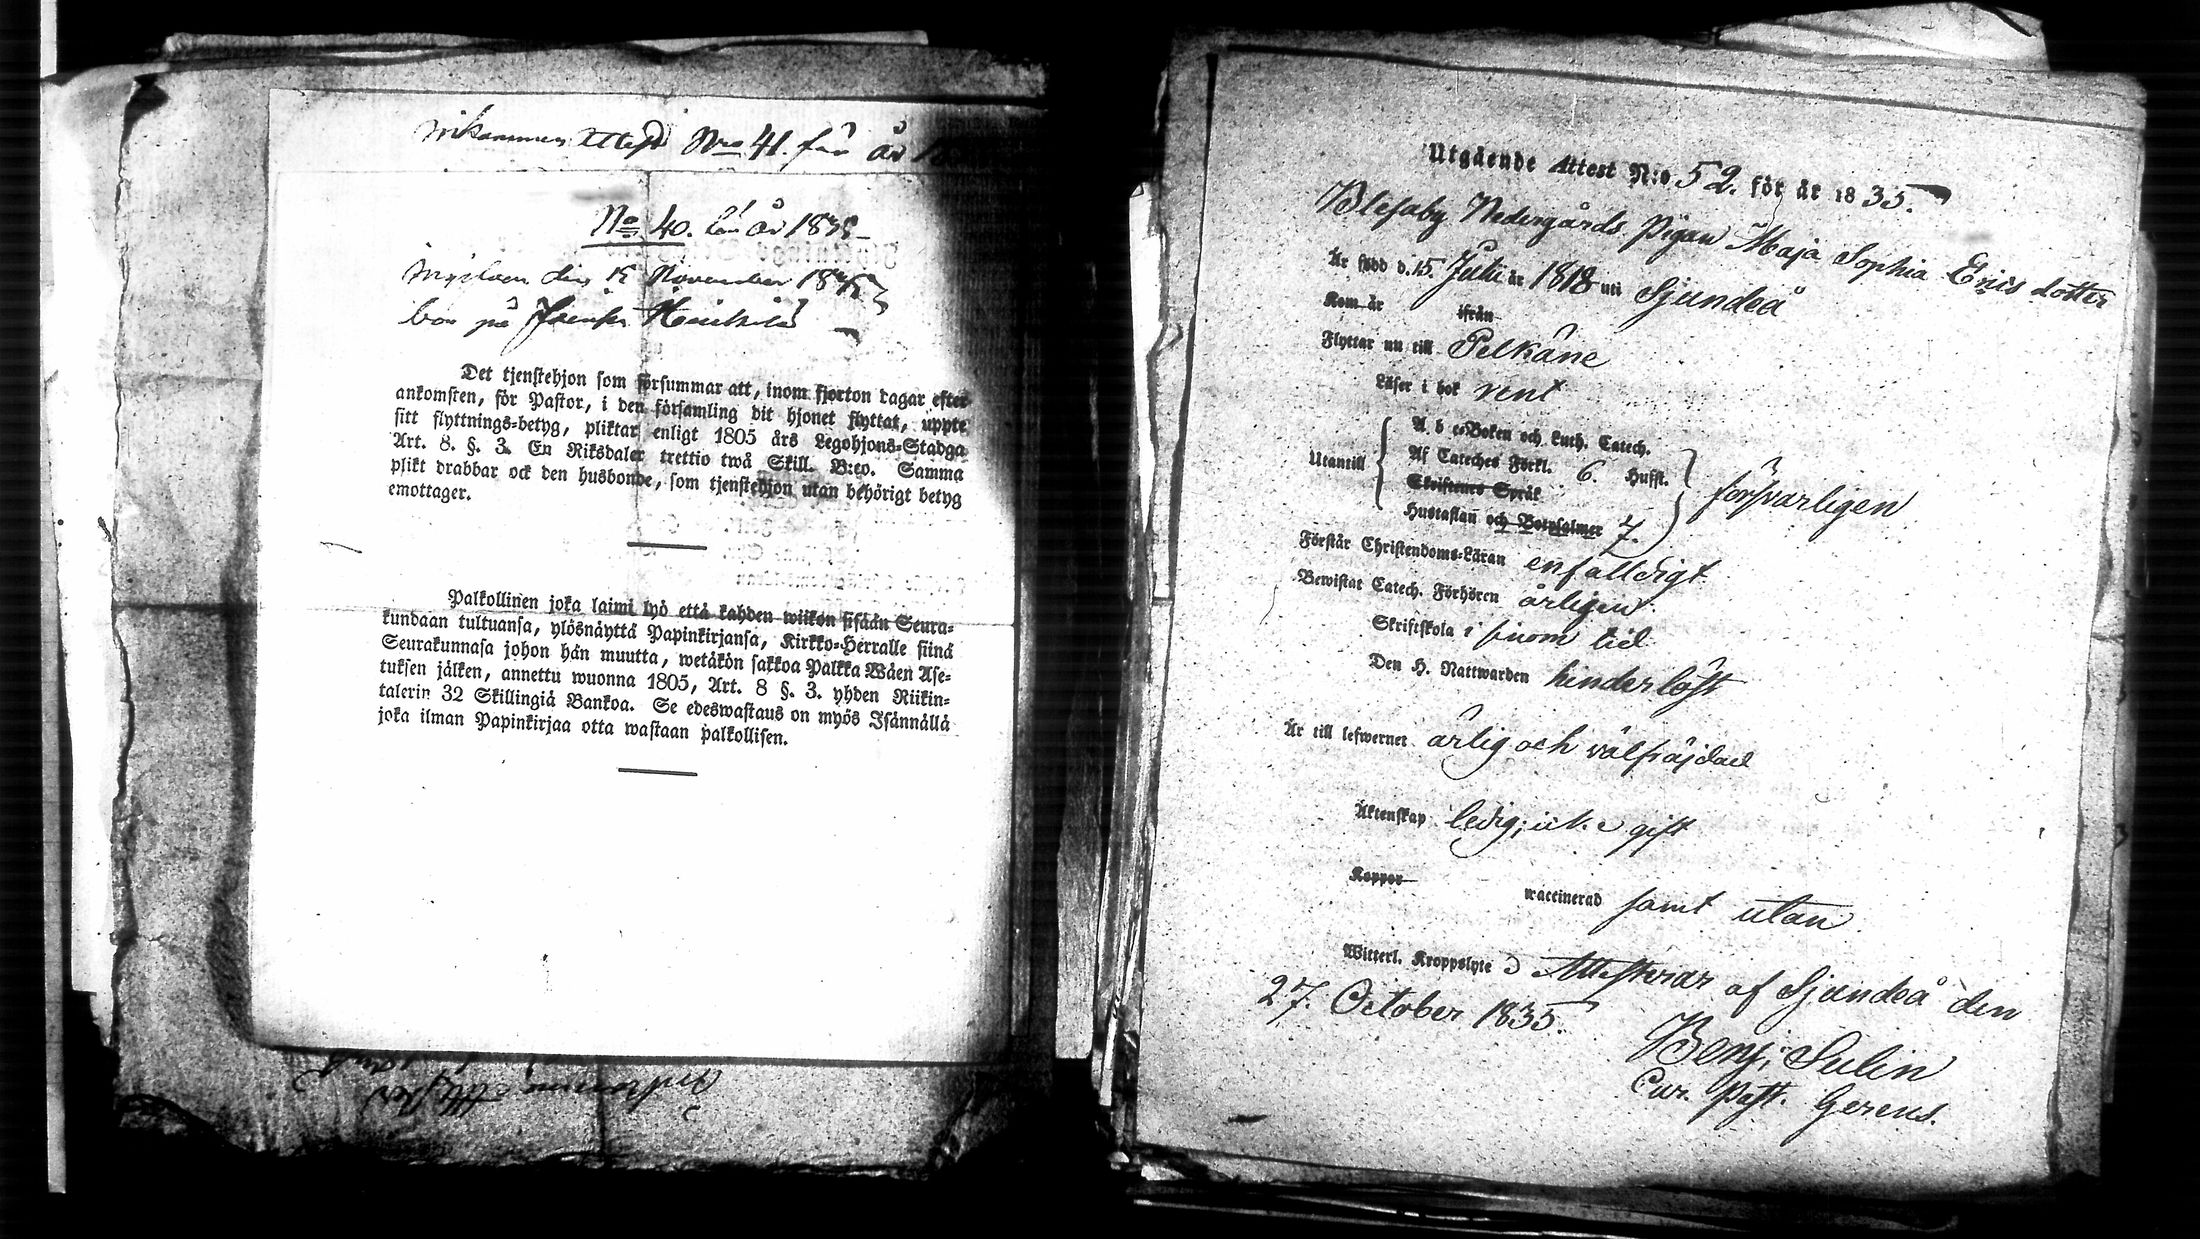 Inkommen Attest Nro 41. för år
No 40. för år 1835
den 15 November 1835
bor på Heikkilä
Det tjenstehjon som försummar att, inom fjorton dagar efter
ankomsten, för Pastor, i den församling dit hjonet flyttat, uppte
sitt flyttnings-betyg, pliktar enligt 1805 års Legohjons-Stadga
Art. 8. §. 3. En Riksdaler trettio twå Skill. B:co. Samma
plikt drabbar ock den husbonde, som tjenstehjon utan behörigt betyg
emottager.
Palkollinen joka laimi lyö että kahden wiikon sisään Seura-
kundaan tultuansa, ylösnäyttä Papinkirjansa, Kirkko-Herralle siinä
Seurakunnasa johon hän muutta, wetäkön sakkoa Palkka Wäen Ase-
tuksen jälken, annettu wuonna 1805, Art. 8 §. 3. yhden Riikin-
talerin 32 Skillingiä Bankoa. Se edeswastaus on myös Isännällä
joka ilman Papinkirjaa otta wastaan palkollisen.
Utgående Attest N:o 52. för år 1835.
Nedergårds Pigan Maja Sophia Erics dotter
Är född d. 15 Julii år 1818 uti Sjundeå
Kom år ifrån
Flyttar nu till Pelkäne
Läser i bok rent
Utantill
A b c-Boken och Luth. Catech.
Af Cateches Förkl. 6. Hufst.
Skriftenes Språk
Hustaflan och Botpsalmer 7.
försvarligen
Förstår Christendoms-Läran enfaldigt
Bewistat Catech. Förhören årligen
Skriftskola i sinom tid
Den H. Nattwarden hinderlöst
Är till lefwernet ärlig och välfräjdad
Äktenskap ledig; icke gift
Koppor waccinerad samt utan
Witterl. Kroppslyte; Attesterar af Sjundeå den
27. October 1835.
Benj; Sulin
Cur. Past. Gerens.